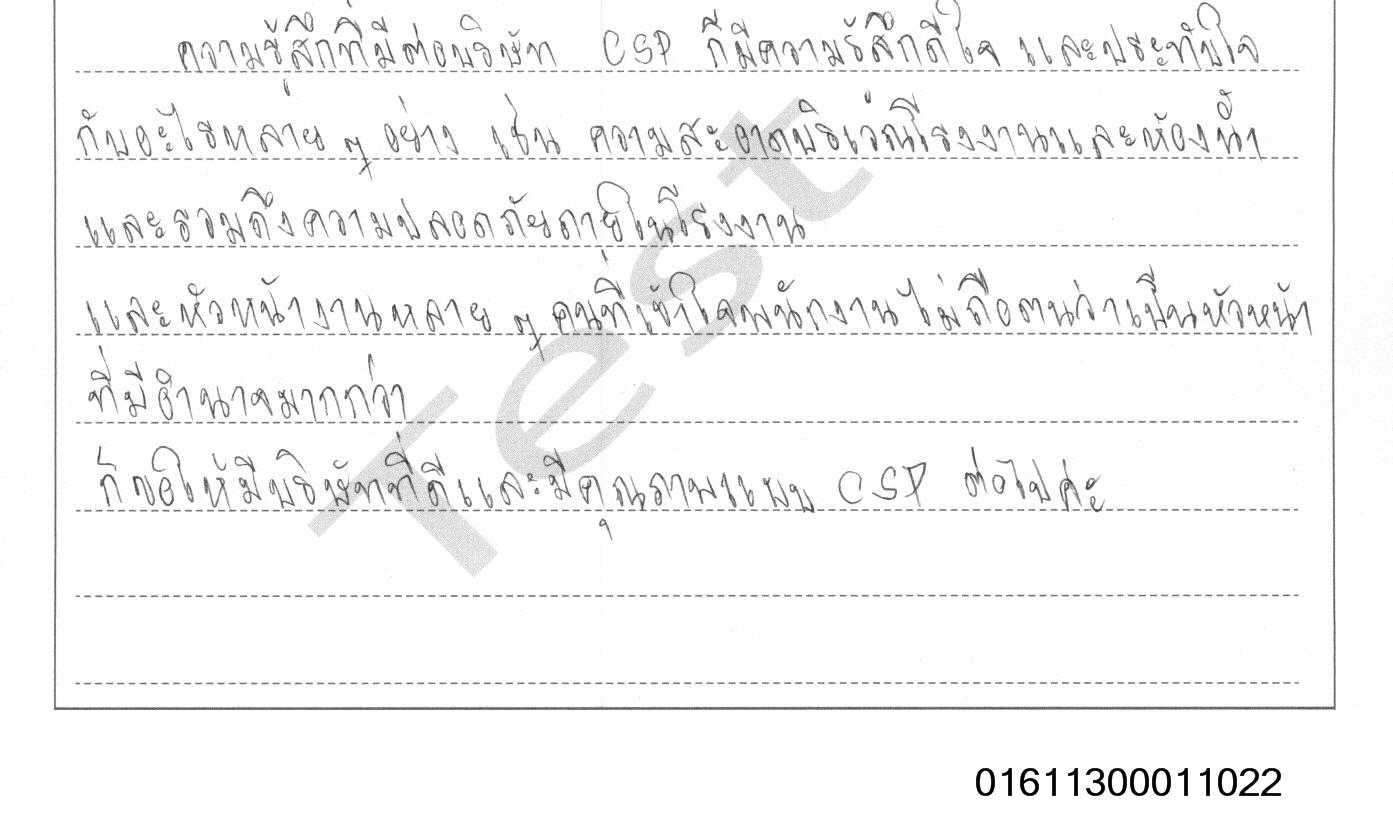 ความรู้สึกที่มีต่อบริษัท CSP ก็มีความรู้สึกดีใจ และประทับใจ
กับอะไรหลาย ๆ อย่าง เช่น ความสะอาดบริเวณโรงงานและห้องน้ำ
และรวมถึงความปลอดภัยภายในโรงงาน
และหัวหน้างานหลาย ๆ คนที่เข้าใจพนักงานไม่ถือตนว่าเป็นหัวหน้า
ที่มีอำนาจมากกว่า
ก็ขอให้มีบริษัทที่ดีและมีคุณภาพแบบ CSP ต่อไปค่ะ
Test
01611300011022